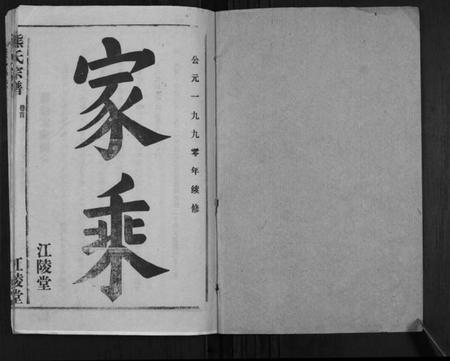 公元一九九零年续修
家乘
江陵堂
熊氏宗谱
卷首
江陵堂